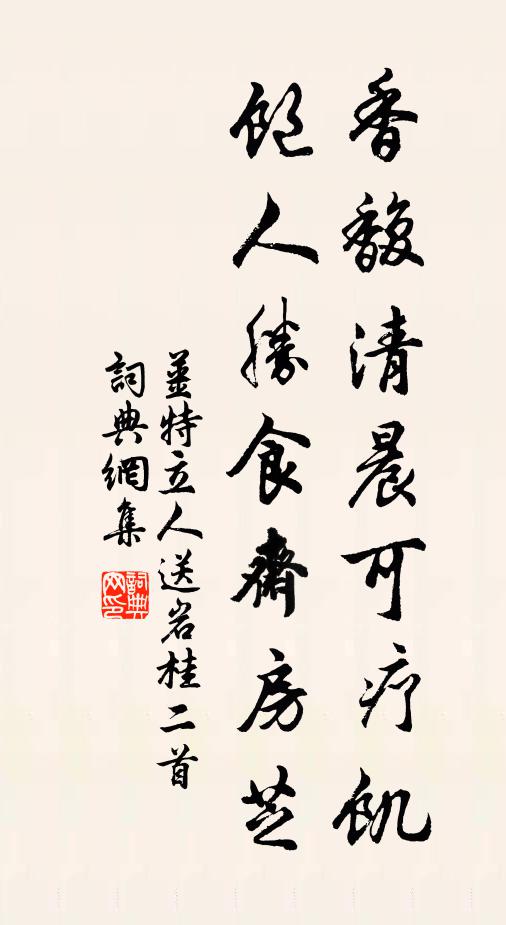 香馥清晨可疗飢
飽人勝食齋房芝
薑特立人送岩桂二首
詞典網集
詞典网印